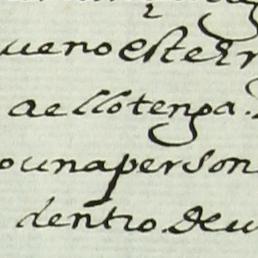 ueno este
aello tenga.
o una person
dentro. De u